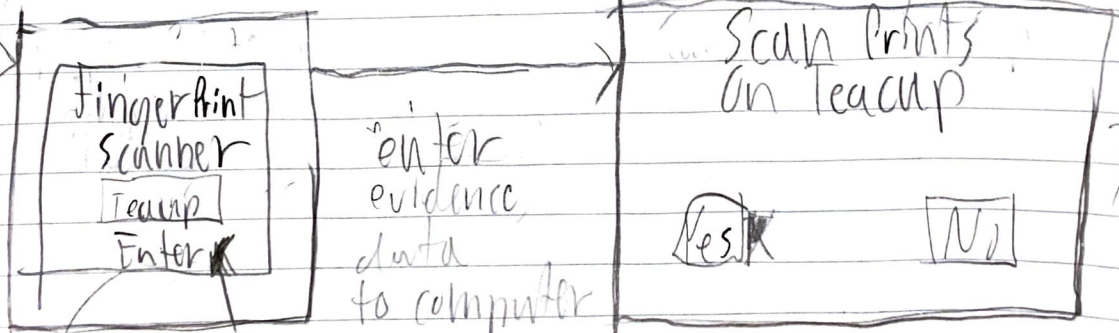 FingerPrint
Scanner
Teacup
Enter
enter
evidence
data
to computer
Scan Prints
On Teacup
Yes
No